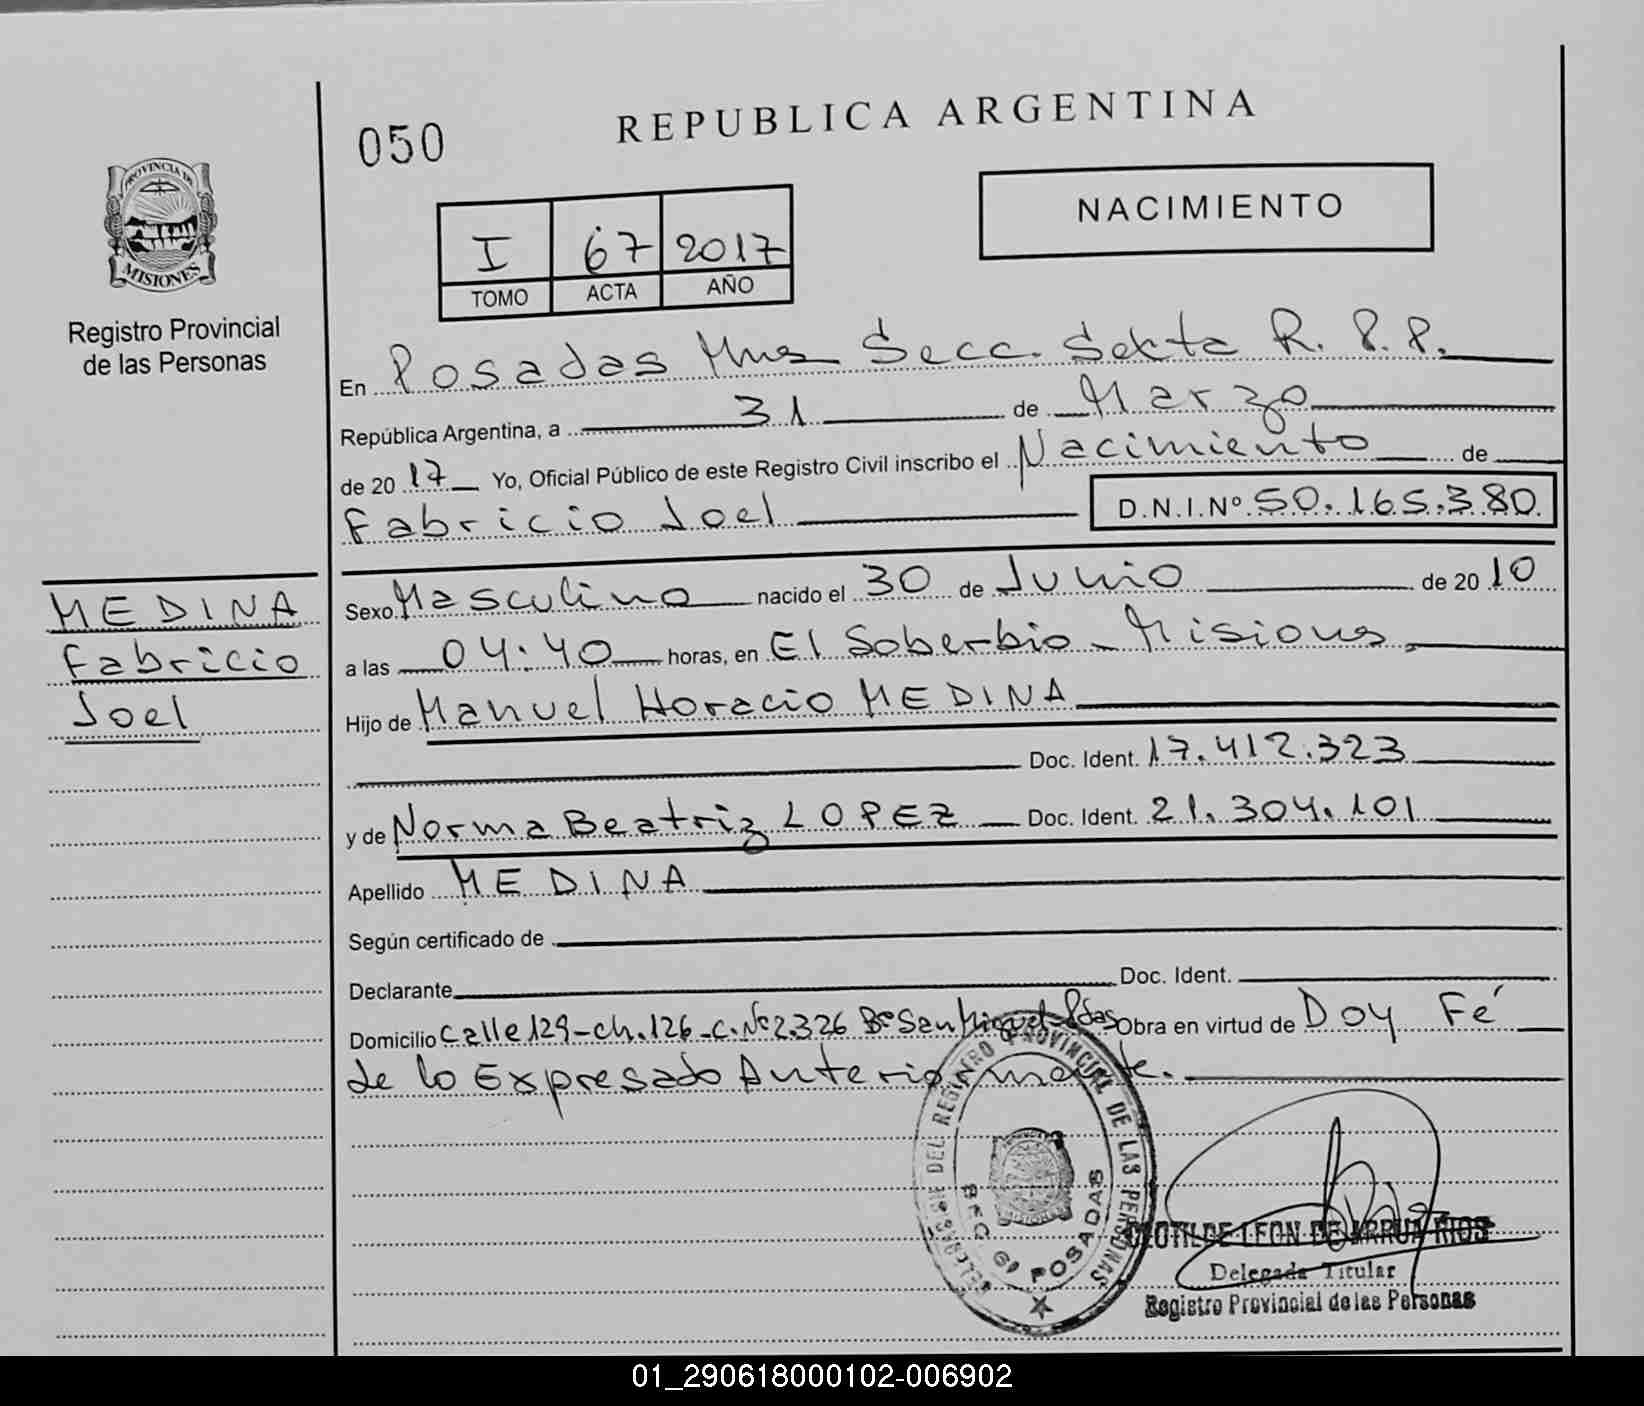 050
REPUBLICA ARGENTINA
PROVINCIA DE
MISIONES
Registro Provincial
de las Personas
I 67 2017
TOMO ACTA AÑO
NACIMIENTO
En Posadas Mnes Secc. Sexta R. P. P.
República Argentina, a 31 de Marzo
de 2017 Yo, Oficial Público de este Registro Civil inscribo el Nacimiento de
Fabricio Joel D.N.I.Nº 50.165.380
MEDINA
Fabricio
Joel
Sexo Masculino nacido el 30 de Junio de 2010
a las 04:40 horas, en El Soberbio - Misiones
Hijo de Manuel Horacio MEDINA
Doc. Ident. 17.412.323
y de Norma Beatriz LOPEZ Doc. Ident. 21.304.101
Apellido MEDINA
Según certificado de
Declarante Doc. Ident.
Domicilio Calle 129-ch.126-C.Nº2.326 Bº San Miguel-Pdas Obra en virtud de Doy Fé
de lo Expresado Anteriormente.
DEL REGISTRO PROVINCIAL DE LAS PERSONAS
SEC 6ª POSADAS
CLOTILDE LEON DE ARRUA RIOS
Delegada Titular
Registro Provincial de las Personas
01_290618000102-006902